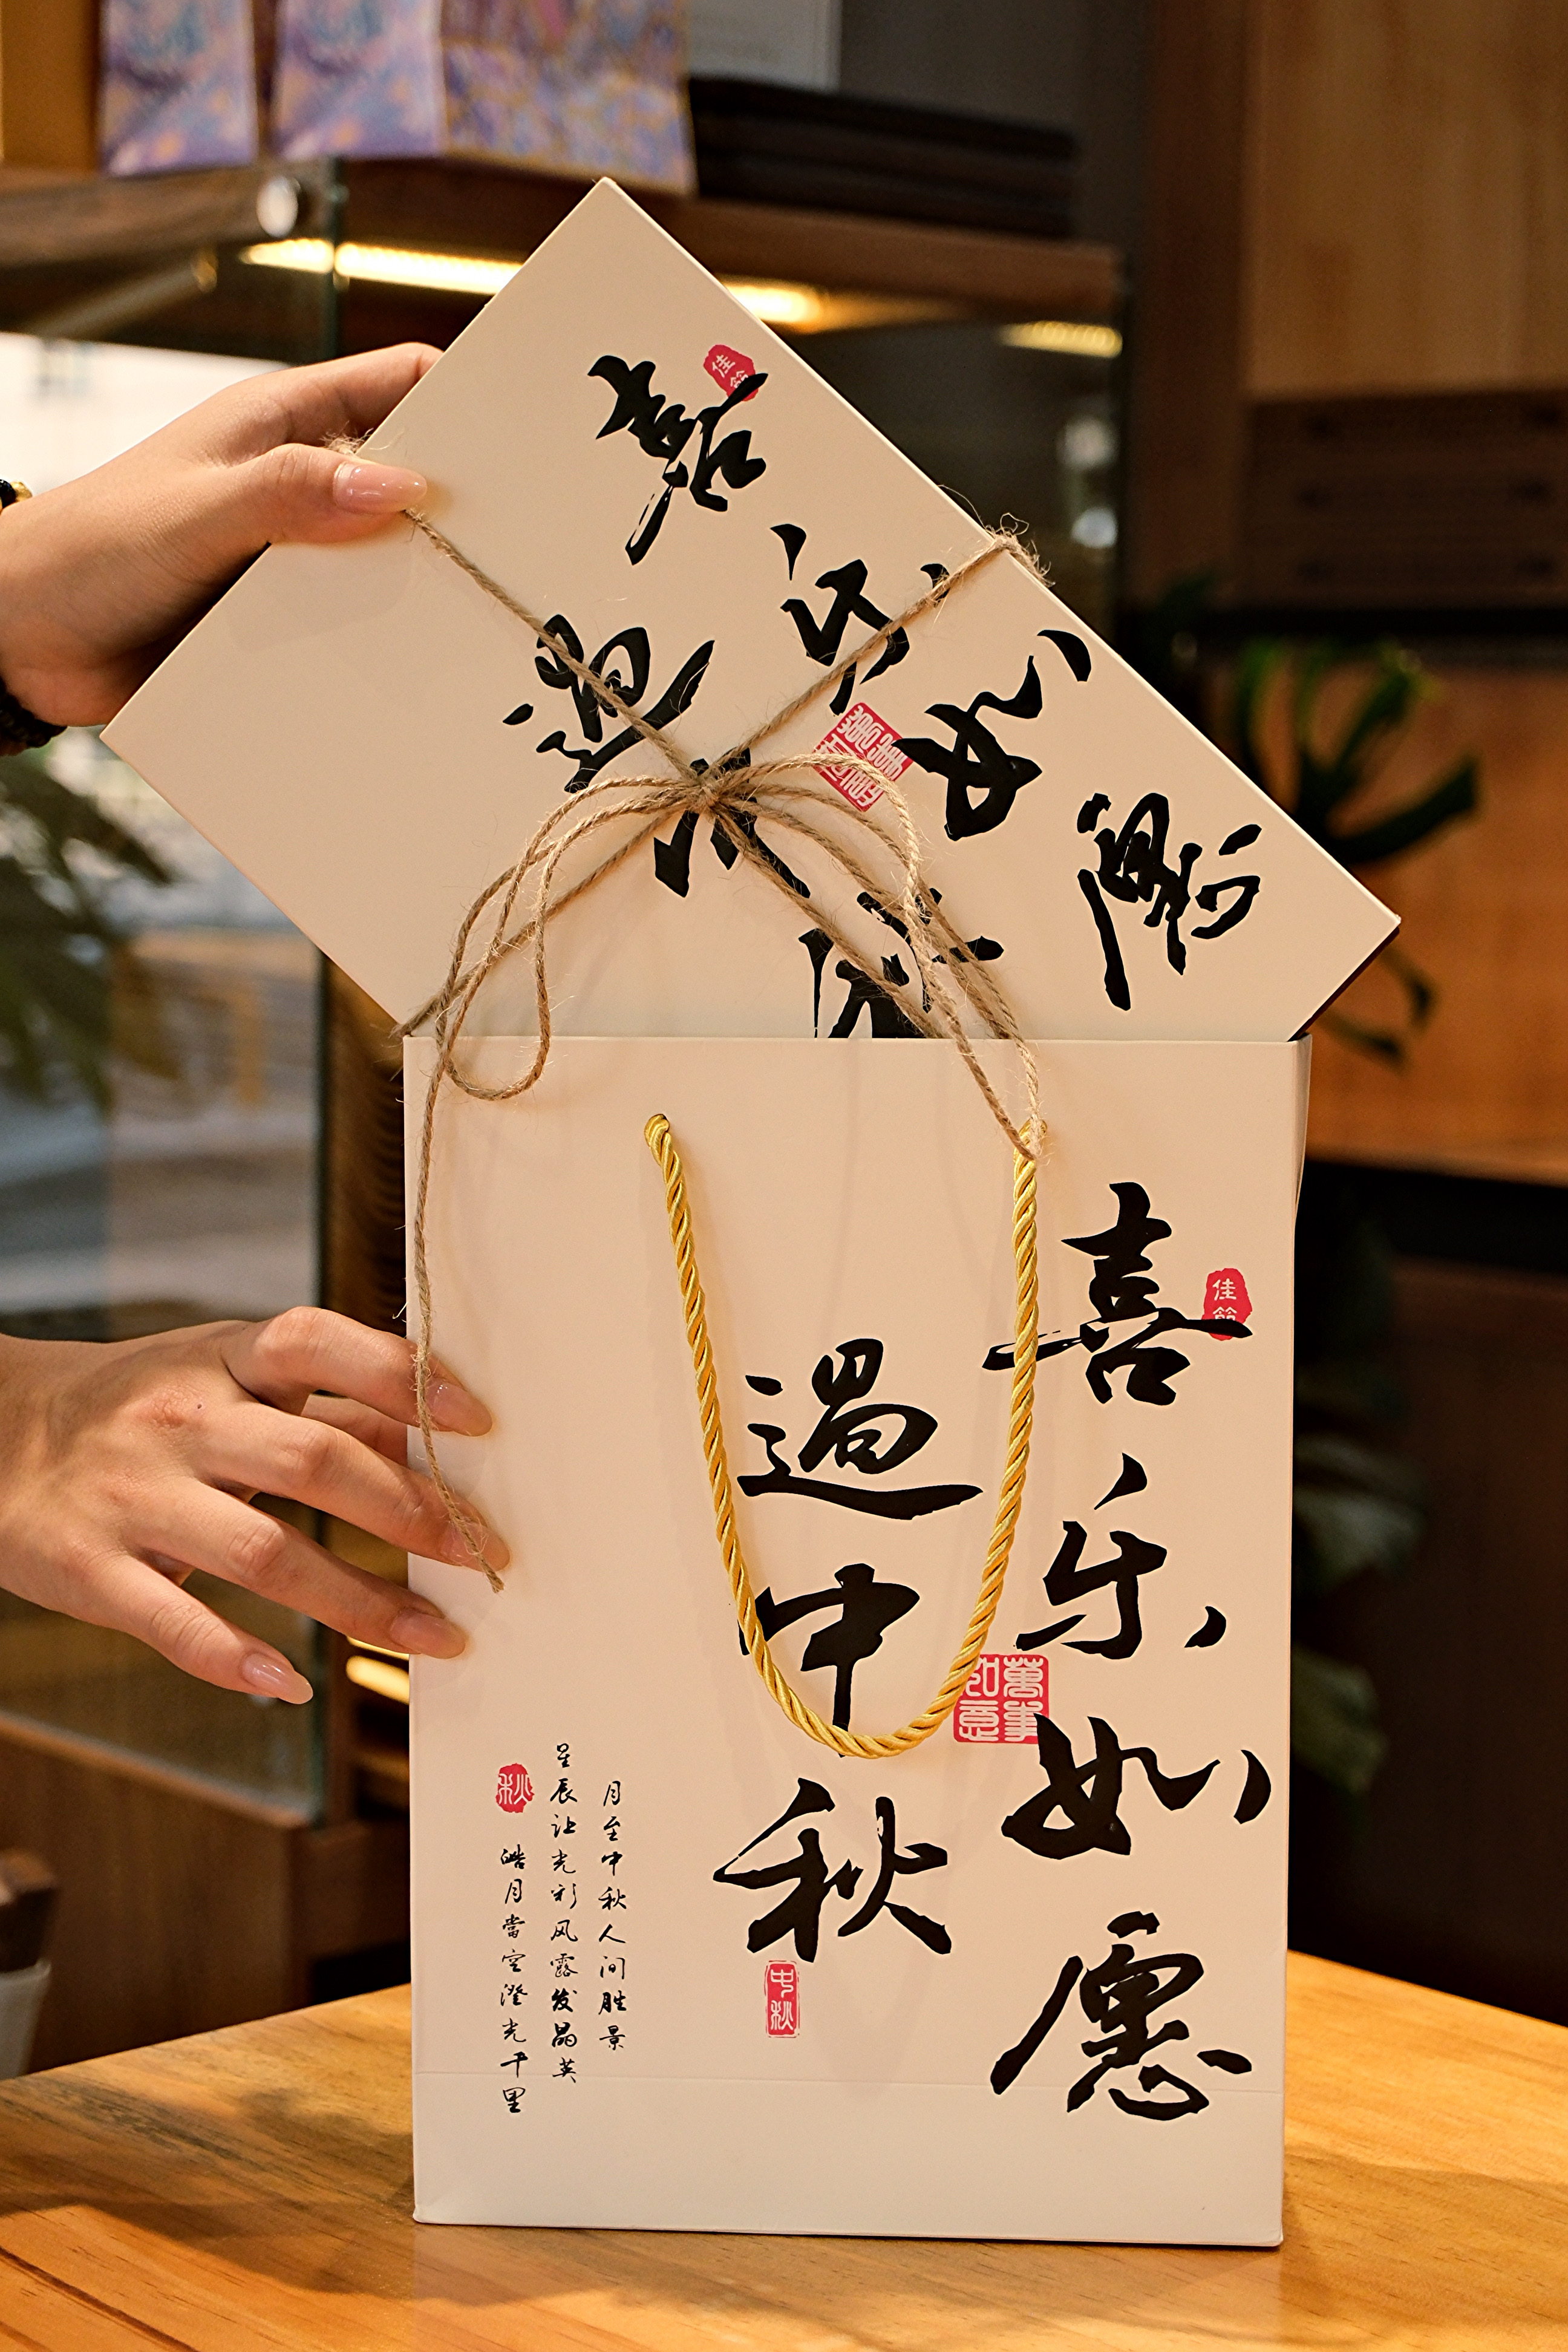 佳節
喜乐如愿
萬事如意
過中秋
佳節
喜乐如愿
萬事如意
過中秋
中秋
月至中秋人间胜景
星辰让光彩风露发晶英
秋
皓月當空澄光千里